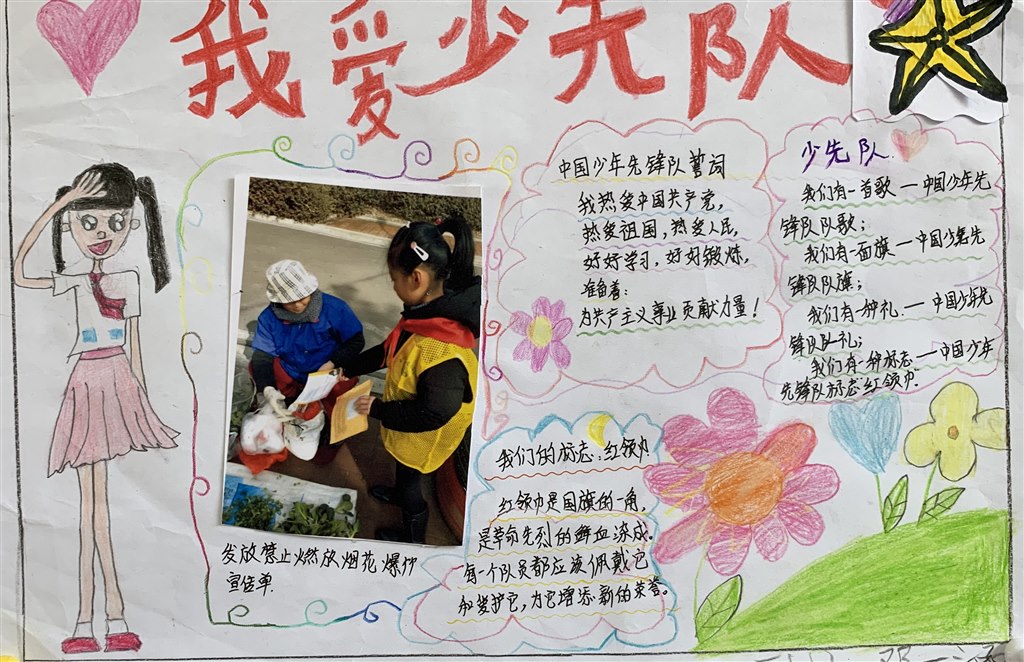 我爱少先队
中国少年先锋队誓词
我热爱中国共产党，
热爱祖国，热爱人民，
好好学习，好好锻炼，
准备着：
为共产主义事业贡献力量！
少先队
我们有一首歌——中国少年先
锋队队歌；
我们有一面旗——中国少年先
锋队队旗；
我们有一种礼——中国少年先
锋队队礼；
我们有一种标志——中国少年
先锋队标志红领巾
我们的标志：红领巾
红领巾是国旗的一角，
是革命先烈的鲜血染成。
每一个队员都应该佩戴它
和爱护它，为它增添新的荣誉。
发放禁止燃放烟花爆炸
宣传单